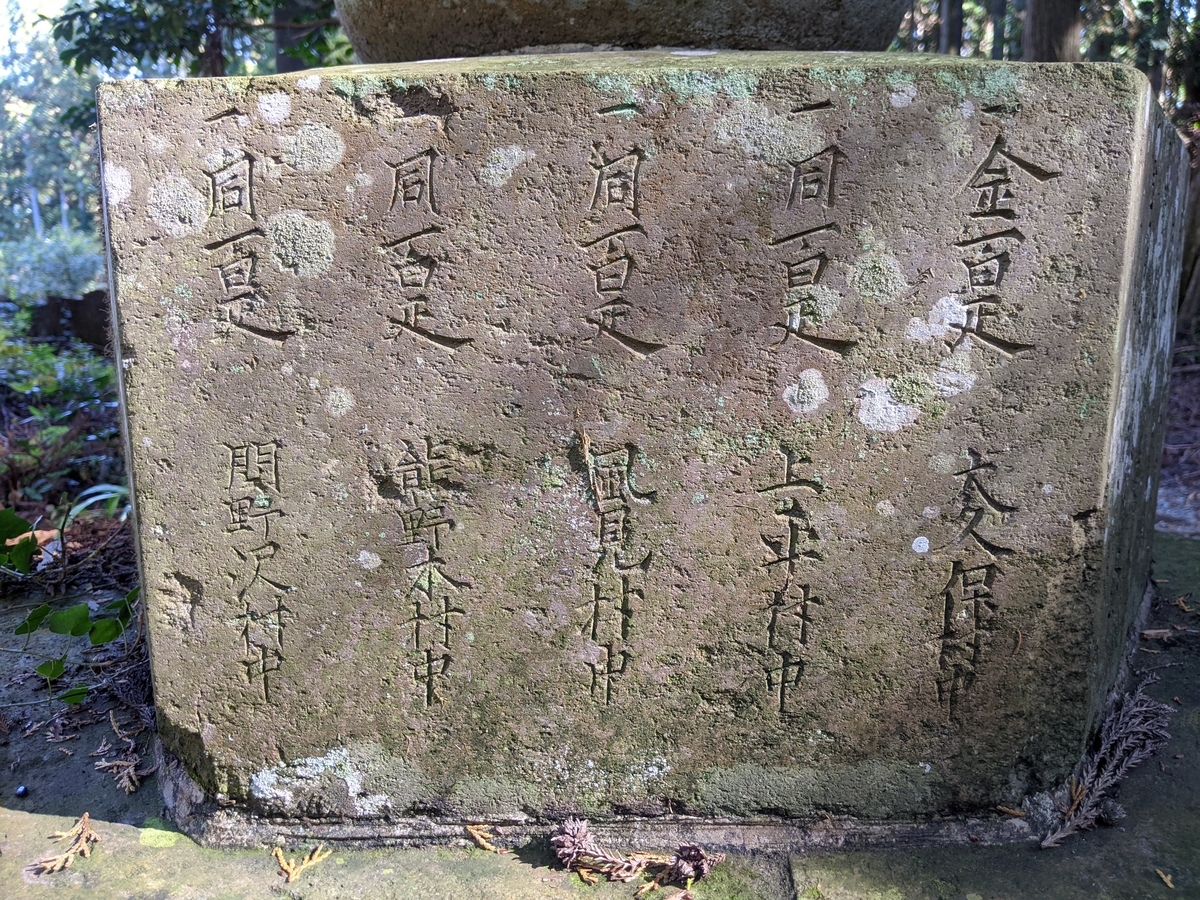 一金一百疋 大久保村中
一同一百疋 上平村中
一同一百疋 風見村中
一同一百疋 熊野木村中
一同一百疋 関野沢村中